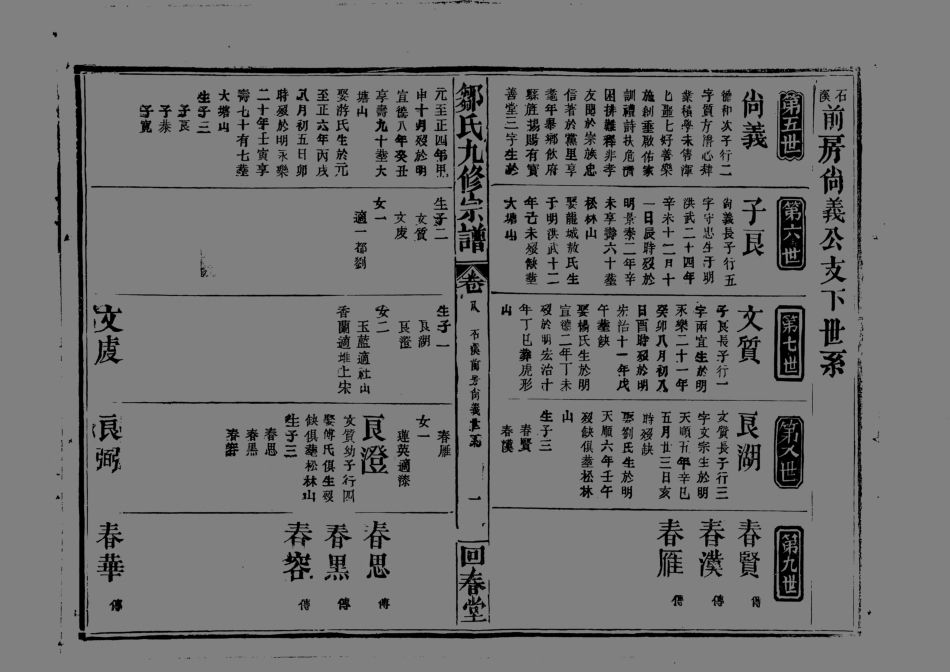 石溪
前房尙義公支下世系
第五世
尙義
第六世
子良
尙義長子行五
字守忠生于明
洪武二十四年
辛未十二月十
一日辰時歿於
明景泰二年辛
未享壽六十葬
松林山
娶龍城敖氏生
于明洪武十二
年己未歿缺葬
大塘山
第七世
文質
子良長子行一
字兩宜生於明
永樂二十一年
癸卯八月初八
日酉時歿於明
宏治十一年戊
午葬缺
娶楊氏生於明
宣德二年丁未
歿於明宏治十
年丁巳葬虎形
山
第八世
良湖
文質長子行三
字文宗生於明
天順五年辛巳
五月廿三日亥
時歿缺
娶劉氏生於明
天順六年壬午
歿缺俱葬松林
山
生子三
春賢
春漢
第九世
春賢
傳
春漢
傳
春雁
傳
鄒氏九修宗譜
卷
八
石溪前房尙義世系
一
回春堂
元至正四年甲
申十月歿於明
宣德八年癸丑
享壽九十葬大
塘山
娶蔣氏生於元
至正六年丙戌
八月初五日卯
時歿於明永樂
二十年壬寅享
壽七十有七葬
大塘山
生子三
子良
子泰
子寬
生子二
文質
文虔
女一
適一都劉
生子二
良湖
良澄
女二
玉藍適社山
香蘭適堆上宋
文虔
春雁
女一
蓮英適漆
良澄
文質幼子行四
娶傅氏俱生歿
缺俱葬松林山
生子三
春思
春黑
春容
良弼
春思
傳
春黑
傳
春容
傳
春華
傳